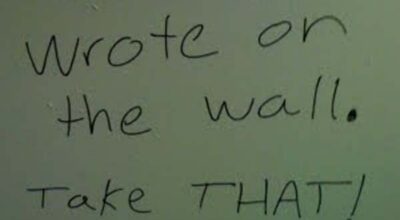 Wrote on
the wall.
Take THAT!